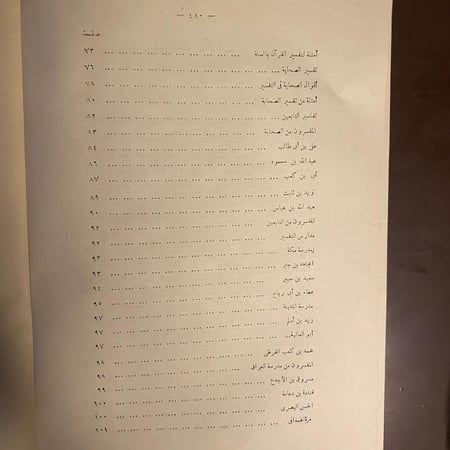 — ٤٨٠ —
صفحة
أمثلة لتفسير القرآن بالسنة ... ... ... ... ... ... ... ٧٣
تفسير الصحابة ... ... ... ... ... ... ... ... ٧٦
أقوال الصحابة فى التفسير ... ... ... ... ... ... ... ٧٨
أمثلة من تفسير الصحابة ... ... ... ... ... ... ... ٨٠
تفاسير التابعين ... ... ... ... ... ... ... ... ٨٢
المفسرون من الصحابة ... ... ... ... ... ... ... ٨٣
على بن أبى طالب ... ... ... ... ... ... ... ٨٤
عبد الله بن مسعود ... ... ... ... ... ... ... ٨٦
أبى بن كعب ... ... ... ... ... ... ... ... ٨٧
زيد بن ثابت ... ... ... ... ... ... ... ... ٨٩
عبد الله بن عباس ... ... ... ... ... ... ... ٩٠
المفسرون من التابعين ... ... ... ... ... ... ... ٩٢
مدارس التفسير ... ... ... ... ... ... ... ٩٢
ومدرسة مكة ... ... ... ... ... ... ... ... ٩٣
المجاهد بن جبر ... ... ... ... ... ... ... ٩٣
سعيد بن جبير ... ... ... ... ... ... ... ٩٤
عطاء بن أبى رباح ... ... ... ... ... ... ... ٩٥
مدرسة المدينة ... ... ... ... ... ... ... ٩٦
زيد بن أسلم ... ... ... ... ... ... ... ... ٩٧
أبو العالية.. ... ... ... ... ... ... ... ... ٩٧
محمد بن كعب القرظى ... ... ... ... ... ... ... ٩٨
المفسرون من مدرسة العراق ... ... ... ... ... ... ٩٨
مسروق بن الأجدع ... ... ... ... ... ... ... ٩٩
قتادة بن دعامة ... ... ... ... ... ... ... ١٠٠
الحسن البصرى ... ... ... ... ... ... ... ١٠٠
مرة الهمدانى ... ... ... ... ... ... ... ١٠١